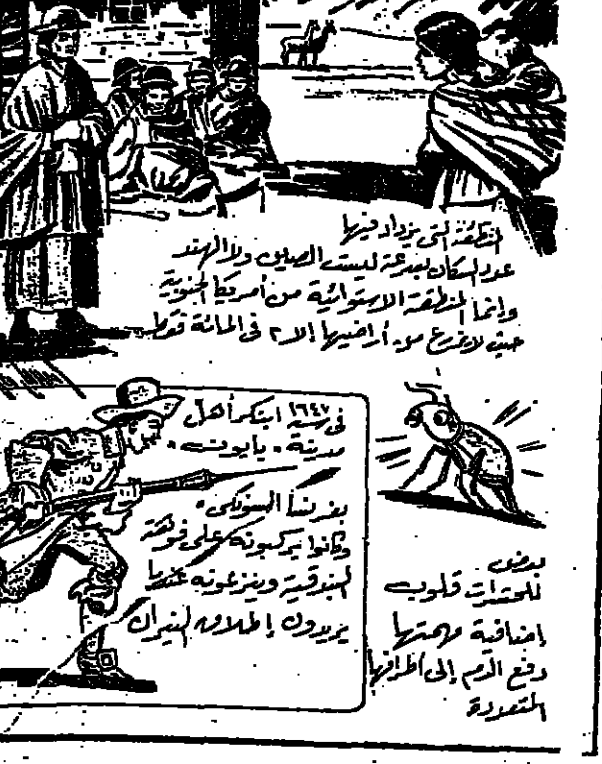 المنطقة التى يزداد فيها
عدد السكان بسرعة ليست الصين ولا الهند
وإنما المنطقة الاستوائية من أمريكا الجنوبية
حيث لا تزرع من أراضيها إلا ٢ فى المائة فقط
فى سنة ١٦٤٧ ابتكر أهل
مدينة « بايون »
بفرنسا السونكى .
وكانوا يركبونه على فوهة
البندقية وينزعونه عندما
يريدون إطلاق النيران
بعض
للحشرات قلوب
إضافية مهمتها
دفع الدم إلى أطرافها
المتعددة